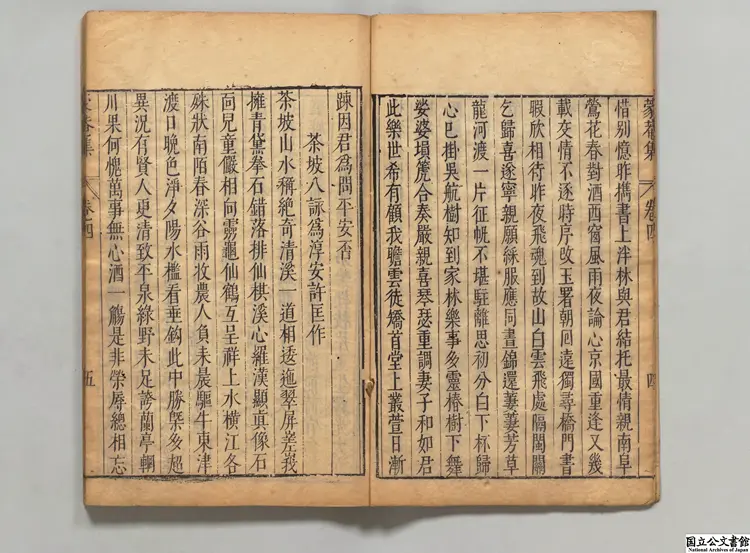 蒙菴集 卷四 四
惜別憶昨攜書上泮林與君結托最情親南皐
鶯花春對酒西窗風雨夜論心京國重逢又幾
載交情不逐時序改玉署朝回遠獨尋橋門書
暇欣相待昨夜飛魂到故山白雲飛處隔閩關
乞歸喜遂寧親願綵服應同晝錦還萋萋芳草
龍河渡一片征帆不堪駐離思初分白下杯歸
心已掛吳航樹知到家林樂事多靈椿樹下舞
婆娑塤箎合奏嚴親喜琴瑟重調妻子和如君
此樂世希有顧我瞻雲徒矯首堂上叢萱日漸
踈因君爲問平安否
茶坡八詠爲淳安許匡作
茶坡山水稱絶奇清溪一道相逶迤翠屏嵳峩
擁青黛拳石錯落排仙棋溪心羅漢顯眞像石
面兒童儼相向靈龜仙鶴互呈祥上水横江各
殊狀南陌春深谷雨收農人負耒晨驅牛東津
渡口晚色淨夕陽水檻看垂鈎此中勝槩多超
異況有賢人更清致平泉綠野未足誇蘭亭輞
川果何愧萬事無心酒一觴是非榮辱總相忘
蒙菴集 卷四 五
国立公文書館
National Archives of Japan